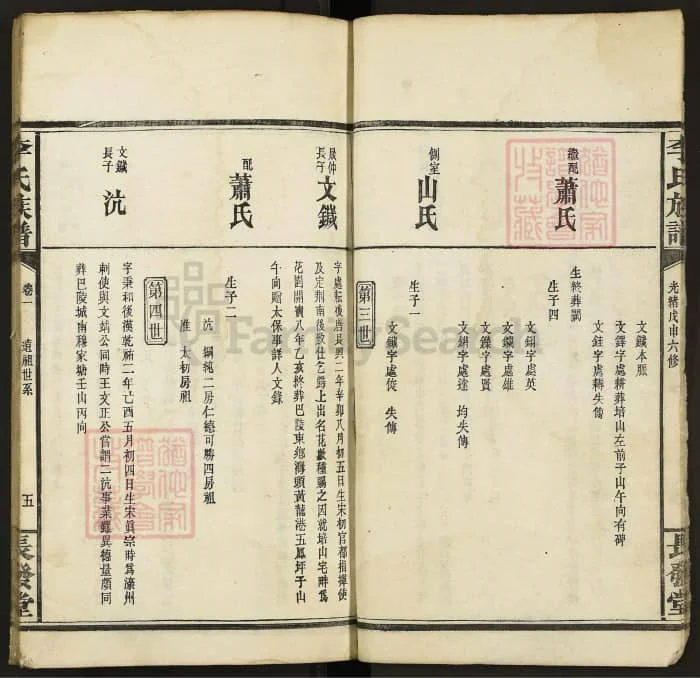 李氏族譜
光緒戊申六修
長發堂
繼配 蕭氏
生終葬闕
生子四
文鐵本脈
文鐸字處耕葬培山左前子山午向有碑
文銈字處耨失傳
文錮字處英
文鐄字處雄
文鑠字處賢
文鋗字處達 均失傳
側室 山氏
生子一
文鏓字處俊 失傳
第三世
長子 文鐵
字處耘後唐長興二年辛卯八月初五日生宋初官都指揮使
及定荆南後致仕乞歸上出名花數種賜之因就培山宅畔爲
花園開寶八年乙亥終葬巴陵東鄉海頭黃龍港五鳳坪子山
午向贈太保事詳人文錄
配 蕭氏
生子二
沆 綱純二房仁德可勝四房祖
維 太初房祖
第四世
文鐵長子 沆
字秉和後漢乾祐二年己酉五月初四日生宋眞宗時爲濠州
刺使與文靖公同時王文正公嘗謂二沆事業雖異德量頗同
葬巴陵城南穆家塘壬山丙向
李氏族譜
卷一
遠祖世系
五
長發堂
FamilySearch